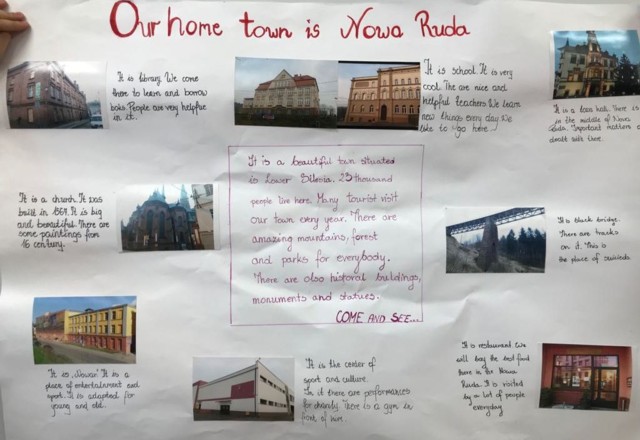 Our home town is Nowa Ruda
It is library. We come
there to learn and borrow
boks. People are very helpfue
in it.
It is school. It is very
cool. The are nice and
helpful teachers We learn
new things every day. We
like to go here
It is a town hall. There is
in the middle of Nowa
Ruda. Important matters are
dealt with there.
It is a beautiful town situated
is Lower Silesia. 23 thousand
people live here. Many tourist visit
our town every year. There are
amazing mountains, forest
and parks for everybody.
There are also historial buildings,
monuments and statues.
COME AND SEE...
It is a church. It was
built in 1564. It is big
and beautiful. There are
some paintings from
16 century.
It is black bridge.
There are tracks
on it. This is
the place of suicieds.
It is "Nowar" It is a
place of entertainment and
sport. It is adapted for
young and old.
It is the center of
sport and culture.
In it there are preformances
for charity. There is a gym in
front of
It is restaurant. We
will the best food
there in the Nowa
Ruda. It is visited
by a lot of people
everyday